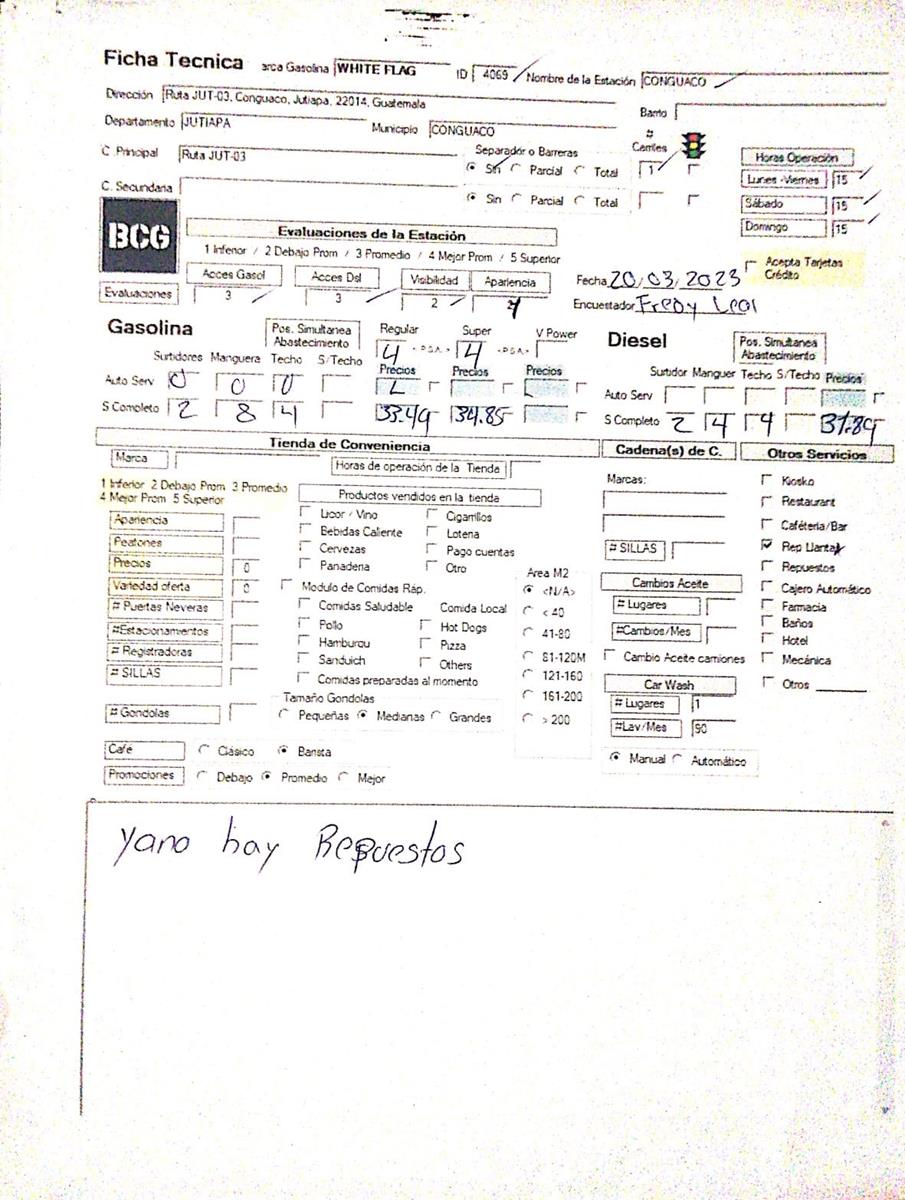 Ficha Tecnica arca Gasolina WHITE FLAG ID 4069 Nombre de la Estación CONGUACO
Dirección Ruta JUT-03, Conguaco, Jutiapa, 22014, Guatemala Barrio
Departamento JUTIAPA Municipio CONGUACO # Carriles
C. Principal Ruta JUT-03 Separador o Barreras Sin Parcial Total 1
C. Secundaria Sin Parcial Total
Horas Operación
Lunes -Viernes 15
Sábado 15
Domingo 15
BCG
Evaluaciones de la Estación
1 Inferior / 2 Debajo Prom / 3 Promedio / 4 Mejor Prom / 5 Superior
Acces Gasol Acces Dsl Visibilidad Apariencia
Evaluaciones 3 3 2
Fecha 20/03/2023
Acepta Tarjetas Crédito
Encuestador Fredy Leal
Gasolina Pos. Simultanea Abastecimiento Regular 4 -PSA- Super 4 -PSA- V Power
Surtidores Manguera Techo S/Techo Precios Precios Precios
Auto Serv 0 0 0
S Completo 2 8 4 33.49 34.85
Diesel Pos. Simultanea Abastecimiento
Surtidor Manguer Techo S/Techo Precios
Auto Serv
S Completo 2 4 4 31.89
Tienda de Conveniencia
Marca Horas de operación de la Tienda
1 Inferior 2 Debajo Prom 3 Promedio
4 Mejor Prom 5 Superior
Apariencia
Peatones
Precios 0
Variedad oferta 0
# Puertas Neveras
#Estacionamientos
# Registradoras
# SILLAS
# Gondolas
Productos vendidos en la tienda
Licor / Vino Cigarrillos
Bebidas Caliente Loteria
Cervezas Pago cuentas
Panaderia Otro
Modulo de Comidas Ráp.
Comidas Saludable Comida Local
Pollo Hot Dogs
Hamburqu Pizza
Sanduich Others
Comidas preparadas al momento
Tamaño Gondolas
Pequeñas Medianas Grandes
Area M2
<N/A>
< 40
41-80
81-120M
121-160
161-200
> 200
Café Clásico Barista
Promociones Debajo Promedio Mejor
Cadena(s) de C.
Marcas:
# SILLAS
Cambios Aceite
# Lugares
#Cambios/Mes
Cambio Aceite camiones
Car Wash
# Lugares 1
#Lav/Mes 90
Manual Automático
Otros Servicios
Kiosko
Restaurant
Caféteria/Bar
Rep Llantas
Repuestos
Cajero Automático
Farmacia
Baños
Hotel
Mecánica
Otros
yano hay Repuestos